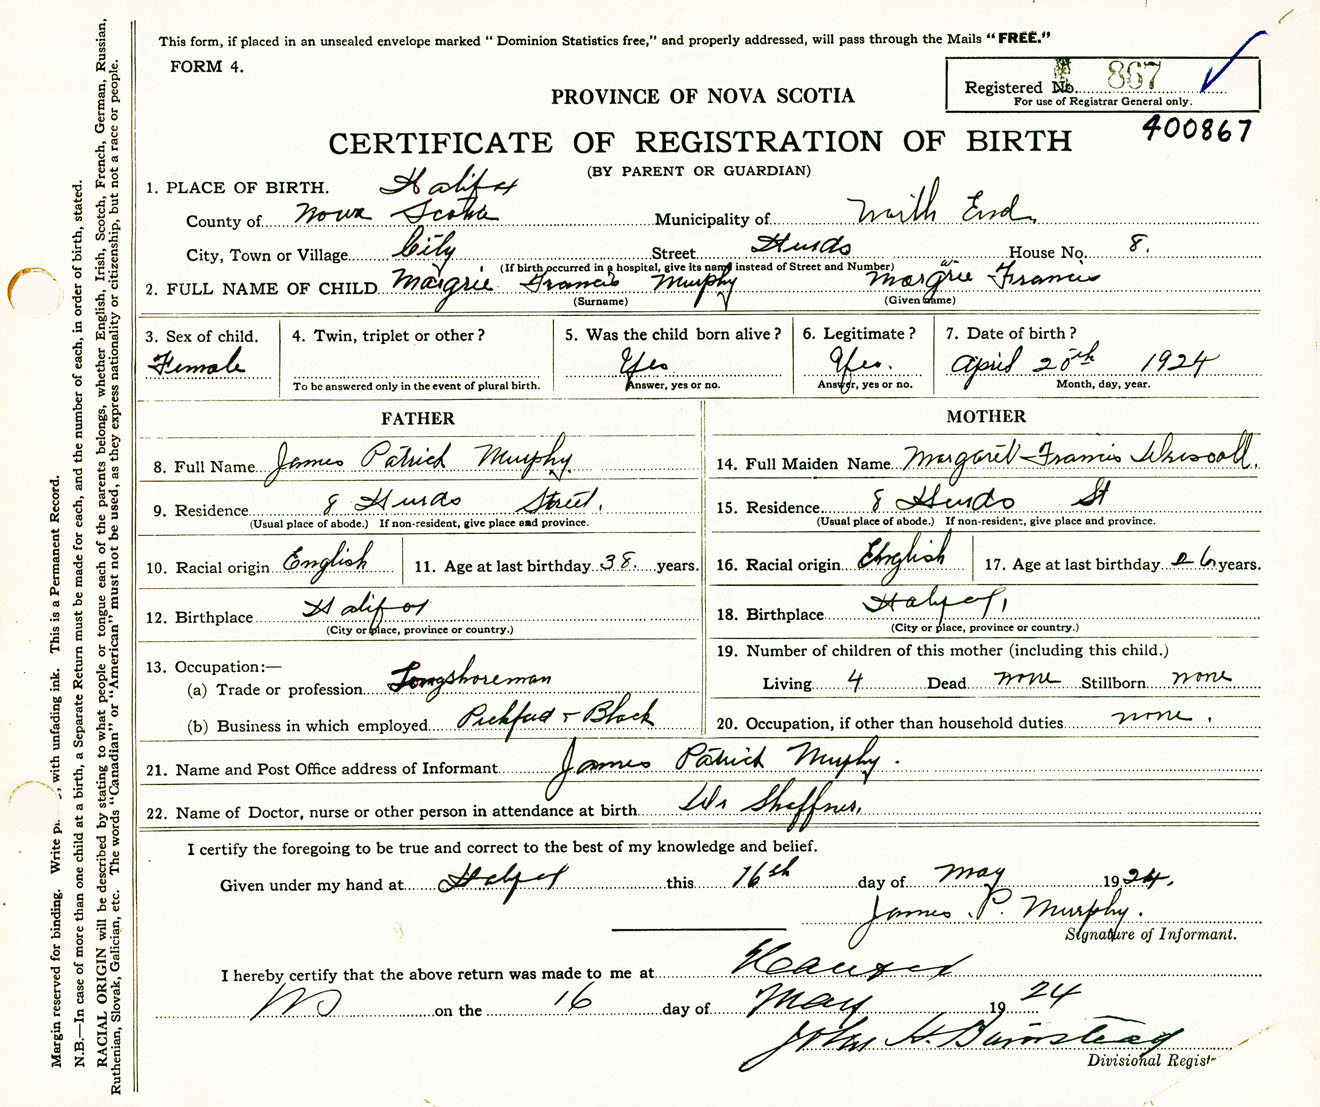 This form, if placed in an unsealed envelope marked " Dominion Statistics free," and properly addressed, will pass through the Mails "FREE."
FORM 4.
Registered No. 867
For use of Registrar General only.
400867
PROVINCE OF NOVA SCOTIA
CERTIFICATE OF REGISTRATION OF BIRTH
(BY PARENT OR GUARDIAN)
1. PLACE OF BIRTH. Halifax
County of Nova Scotia Municipality of North End
City, Town or Village City Street Hurds House No. 8.
(If birth occurred in a hospital, give its name instead of Street and Number)
2. FULL NAME OF CHILD Margrie Francis Murphy Margrie Francis
(Surname) (Given name)
3. Sex of child. 4. Twin, triplet or other? 5. Was the child born alive? 6. Legitimate? 7. Date of birth?
Female Yes Yes. April 20th 1924
To be answered only in the event of plural birth. Answer, yes or no. Answer, yes or no. Month, day, year.
FATHER MOTHER
8. Full Name James Patrick Murphy 14. Full Maiden Name Margaret Francis Driscoll.
9. Residence 8 Hurds Street. 15. Residence 8 Hurds St
(Usual place of abode.) If non-resident, give place and province. (Usual place of abode.) If non-resident, give place and province.
10. Racial origin English 11. Age at last birthday 38. years. 16. Racial origin English 17. Age at last birthday 26 years.
12. Birthplace Halifax 18. Birthplace Halifax,
(City or place, province or country.) (City or place, province or country.)
13. Occupation:— 19. Number of children of this mother (including this child.)
(a) Trade or profession Longshoreman Living 4 Dead none Stillborn none
(b) Business in which employed Pickford & Black 20. Occupation, if other than household duties none.
21. Name and Post Office address of Informant James Patrick Murphy.
22. Name of Doctor, nurse or other person in attendance at birth Dr Shaffner.
I certify the foregoing to be true and correct to the best of my knowledge and belief.
Given under my hand at Halifax this 16th day of May 1924.
James P. Murphy.
Signature of Informant.
I hereby certify that the above return was made to me at Halifax
NS on the 16 day of May 1924
John H. Barnstead
Divisional Regist
Margin reserved for binding. Write , with unfading ink. This is a Permanent Record.
N.B.—In case of more than one child at a birth, a Separate Return must be made for each, and the number of each, in order of birth, stated.
RACIAL ORIGIN will be described by stating to what people or tongue each of the parents belongs, whether English, Irish, Scotch, French, German, Russian,
Ruthenian, Slovak, Galician, etc. The words "Canadian" or "American" must not be used, as they express nationality or citizenship, but not a race or people.